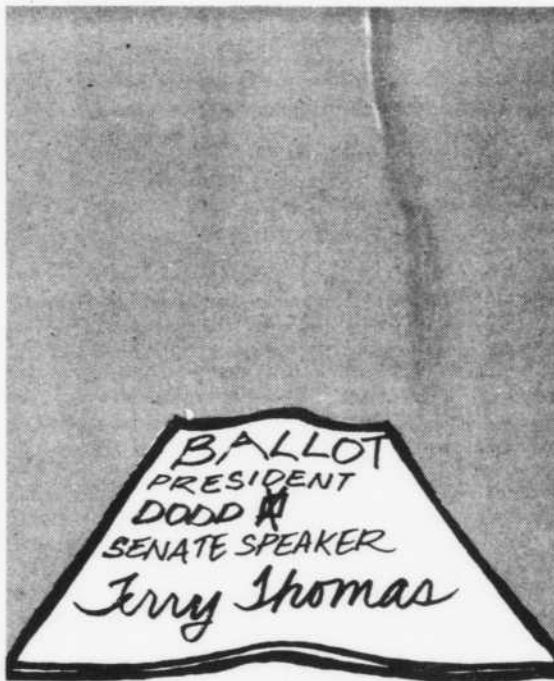 BALLOT
PRESIDENT
DODD
SENATE SPEAKER
Terry Thomas